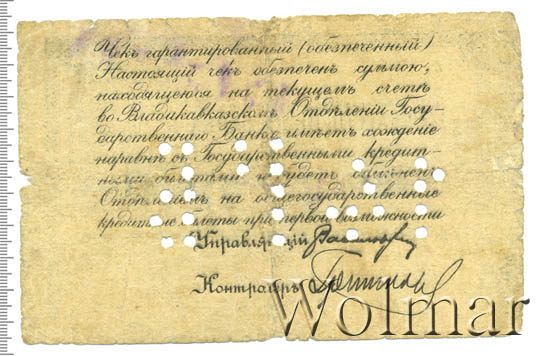 Чекъ гарантированный (обезпеченный)
Настоящій чекъ обезпеченъ суммою,
находящеюся на текущемъ счетѣ
во Владикавказскомъ Отдѣленіи Госу-
дарственнаго Банка имѣетъ хожденіе
наравнѣ съ Государственными кредит-
ными билетами и будетъ обмѣненъ
Отдѣленіемъ на общегосударственные
кредитные билеты при первой возможности
Управляющій
Контролеръ
Wolmar